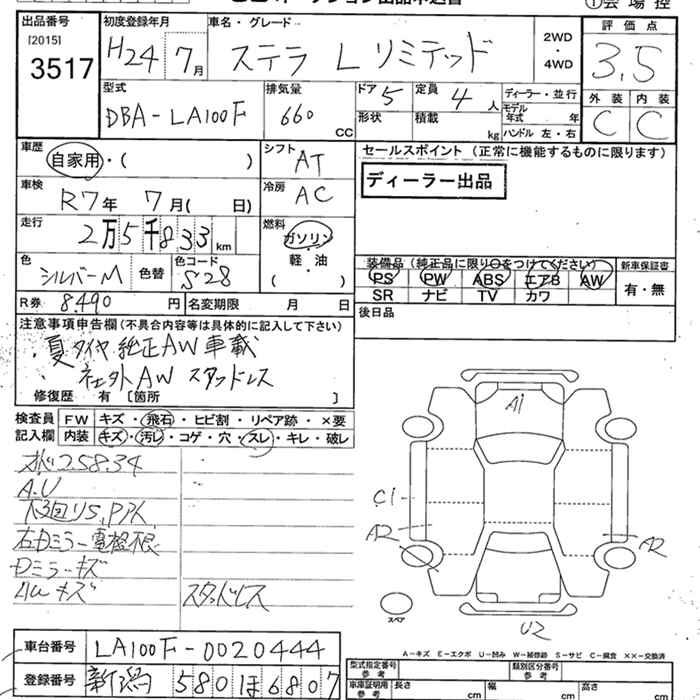 ①会場控
出品番号
[2015]
3517
初度登録年月
H24 7月
車名・グレード
ステラ L リミテッド
2WD
・
4WD
評価点
3.5
外装 内装
C C
型式
DBA-LA100F
排気量
660 CC
ドア 5
定員 4 人
形状
積載 kg
ディーラー・並行
モデル年式 年
ハンドル 左・右
車歴
自家用・( )
シフト AT
車検
R7年 7月( 日)
冷房 AC
走行
2万5千833km
燃料
ガソリン
軽・油
( )
色
シルバーM
色替
色コード
S28
R券 8.490 円
名変期限 月 日
セールスポイント (正常に機能するものに限ります)
ディーラー出品
装備品 (純正品に限り○をつけてください)
PS PW ABS エアB AW
SR ナビ TV カワ
新車保証書
有・無
後日品
注意事項申告欄(不具合内容等は具体的に記入して下さい)
夏タイヤ純正AW車載
社外AW スタッドレス
修復歴 有 [箇所 ]
検査員 FW キズ・飛石・ヒビ割・リペア跡・×要
記入欄 内装 キズ・汚レ・コゲ・穴・スレ・キレ・破レ
258.34
A.U
下回りS,Pアス
右Dミラー電格不良
Dミラーキズ
AW キズ スタッドレス
A1
C1
A2
A2
U2
スペア
A-キズ E-エクボ U-凹み W-補修跡 S-サビ C-腐食 ××-交換済
車台番号 LA100F-0020444
登録番号 新潟 580 ほ 6807
型式指定番号
参考
類別区分番号
参考
車庫証明用
参考
長さ cm
幅 cm
高さ cm